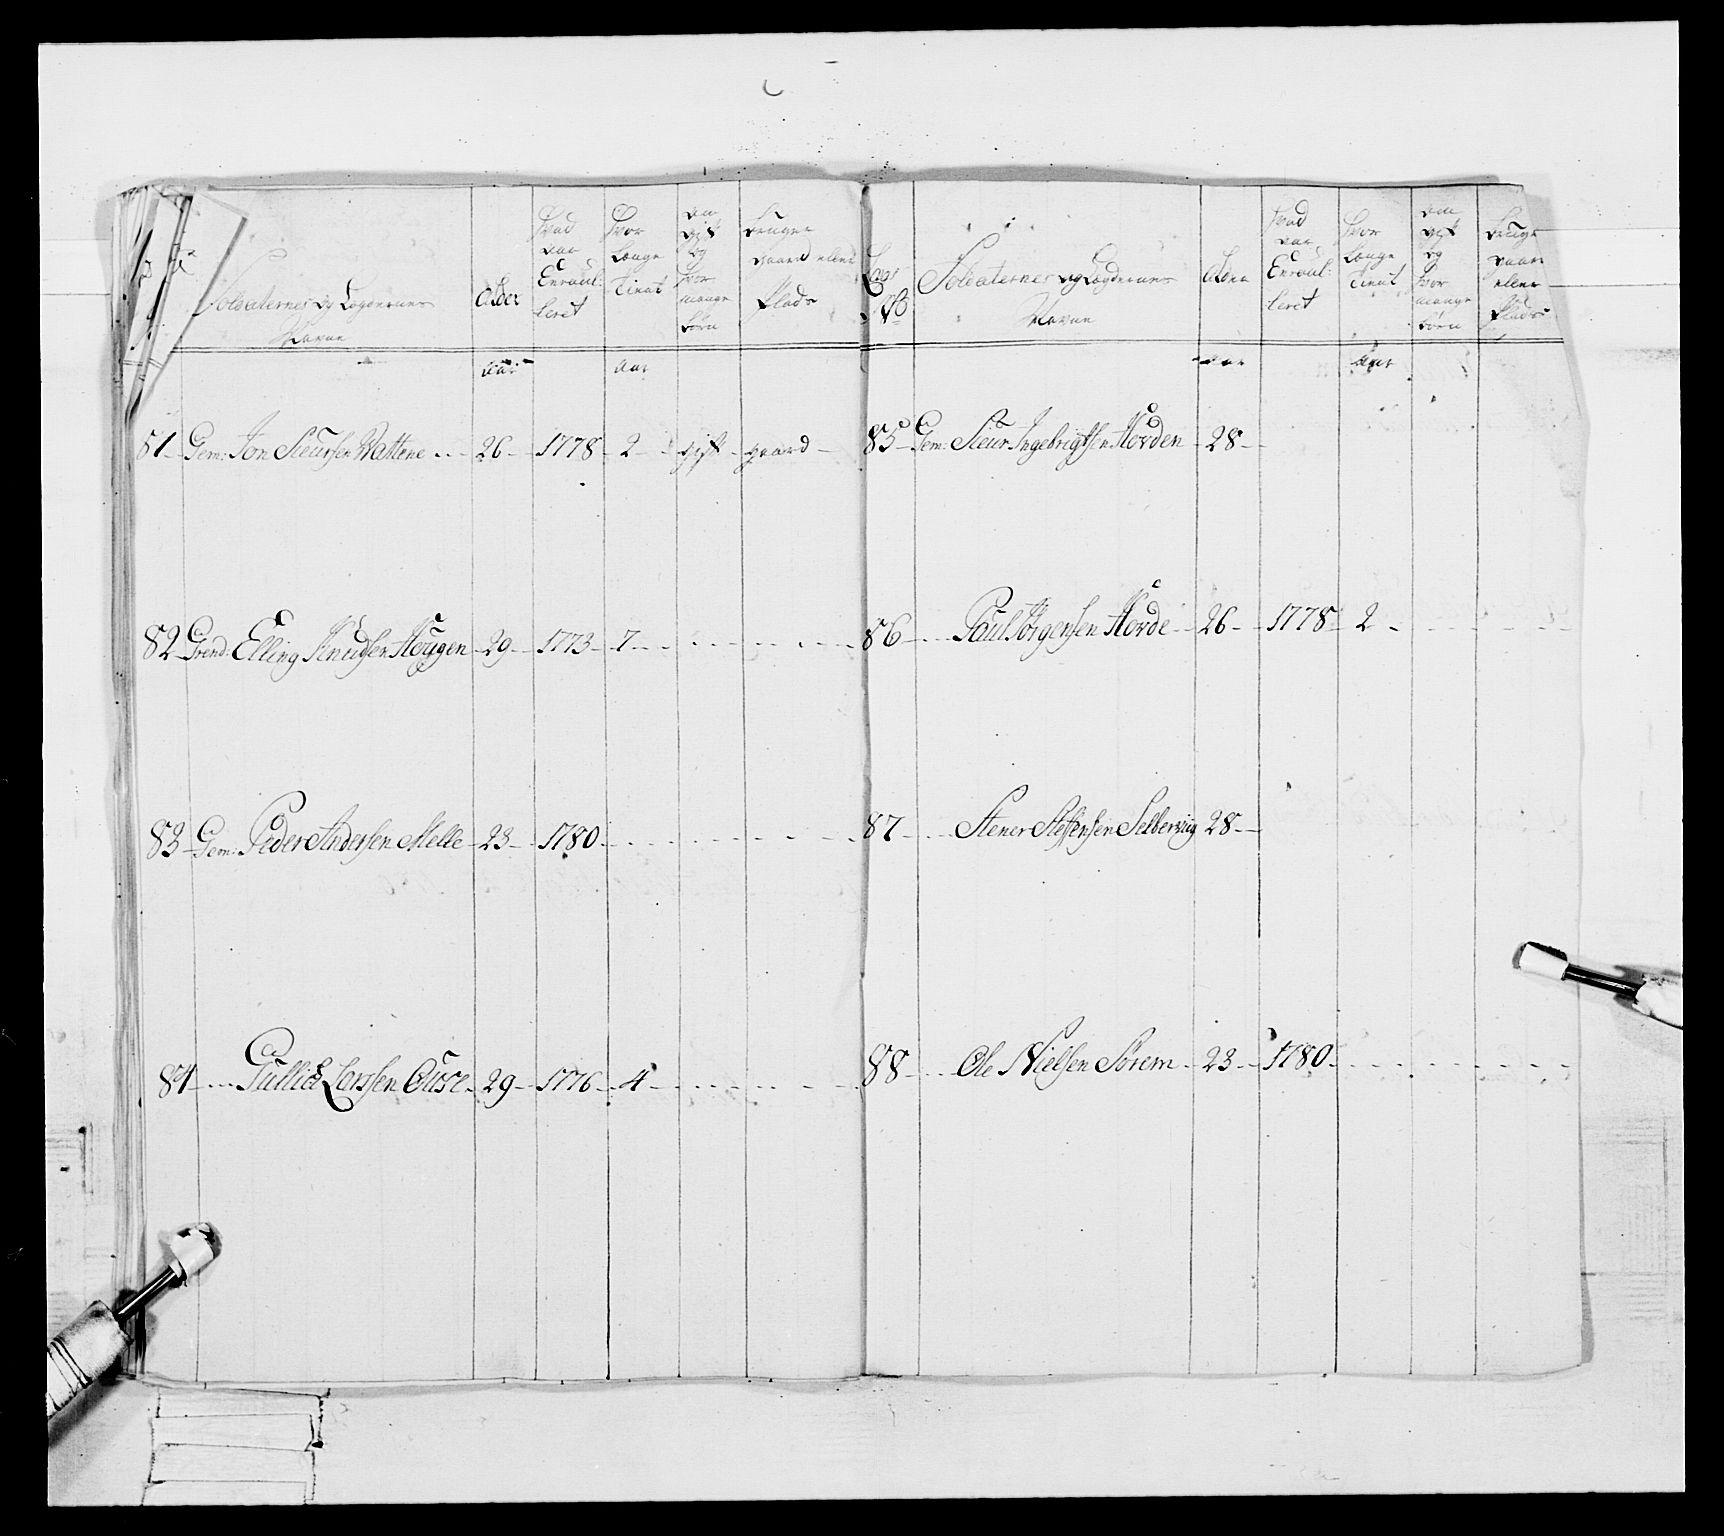 Soldaternes og Lægdernes Navne
Alder
Hvad aar Enroulleret
Hvor længe Tient
om gift og hvor mange børn
bruger gaard eller Plads
Læg No
Soldaternes og Lægdernes Navne
Alder
Hvad aar Enroulleret
Hvor længe Tient
om gift og hvor mange børn
bruger gaard eller Plads
aar aar
aar aar
81 Gem: Jon Siursen Wattene 26 1778 2 gift gaard
82 Grend: Elling Knudsen Høygen 29 1773 7
83 Gem: Peder Andersen Melle 23 1780
84 Gullich Larssen Ouse 29 1776 4
85 Gem: Siur Ingebrigtsen Horden 28
86 Poul Jørgensen Horde 26 1778 2
87 Stener Steffensen Selbervig 28
88 Ole Nielsen Sørem 23 1780